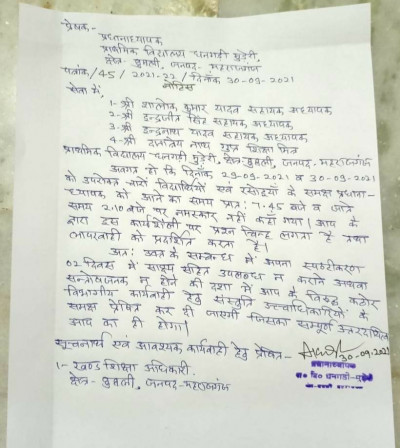 प्रेषक,-
प्रधानाध्यापक
प्राथमिक विद्यालय धनगड़ी मुडेरी,
क्षेत्र- घुघली, जनपद- महराजगंज
पत्रांक/45/2021-22/दिनांक 30-09-2021
नोटिस
सेवा में,
1- श्री कुमार यादव सहायक अध्यापक
2- श्री इन्द्रजीत सिंह सहायक अध्यापक
3- श्री यादव सहायक अध्यापक
4- श्री नाथ गुप्त शिक्षा मित्र
प्राथमिक विद्यालय धनगड़ी मुडेरी, क्षेत्र- घुघली, जनपद- महराजगंज
अवगत हो कि दिनांक 29-09-2021 व 30-09-2021
को उपरोक्त चारों विद्यार्थियों एवं रसोइयों के समक्ष प्रधाना-
ध्यापक को आने का समय प्रातः 7.45 बजे व जाते
समय 2.10 बजे पर नमस्कार नहीं कहा गया। आप के
द्वारा इस कार्यशैली पर प्रश्न चिन्ह लगाता है तथा
लापरवाही को प्रदर्शित करता है।
अतः उक्त के सम्बन्ध में अपना स्पष्टीकरण
02 दिवस में साक्ष्य सहित उपलब्ध न कराने अथवा
सन्तोषजनक न होने की दशा में आप के विरुद्ध कठोर
विभागीय कार्यवाही हेतु संस्तुति उच्चाधिकारियों के
समक्ष प्रेषित कर दी जाएगी जिसका सम्पूर्ण उत्तरदायित्व
आप का ही होगा।
सूचनार्थ एवं आवश्यक कार्यवाही हेतु प्रेषित-
30-09-2021
प्रधानाध्यापक
1- खण्ड शिक्षा अधिकारी
क्षेत्र- घुघली, जनपद- महराजगंज